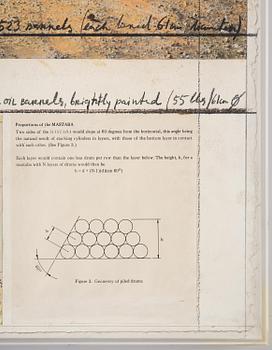 oil barrels, brightly painted (55 lbs/
Proportions of the MASTABA
Two sides of the would slope at 60 degrees from the horizontal, this angle being
the natural result of stacking cylinders in layers, with those of the bottom layer in contact
with each other. (See Figure 2.)
Each layer would contain one less drum per row than the layer below. The height, h, for a
mastaba with N layers of drums would then be
h = d + (N-1)(d)(sin 60°)
h
d
60°
Figure 2. Geometry of piled drums